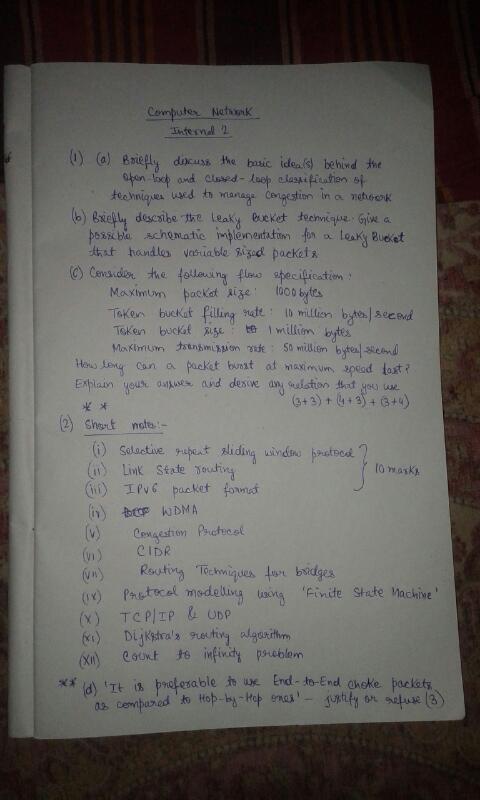 Computer Network
Internal 2
(1) (a) Briefly discuss the basic idea(s) behind the
open-loop and closed-loop classification of
techniques used to manage congestion in a network
(b) Briefly describe the Leaky Bucket technique. Give a
possible schematic implementation for a Leaky Bucket
that handles variable sized packets
(c) Consider the following flow specification:
Maximum packet size: 1000 bytes
Token bucket filling rate: 10 million bytes/second
Token bucket size: 1 million bytes
Maximum transmission rate: 50 million bytes/second
How long can a packet burst at maximum speed last?
Explain your answer and derive any relation that you use
* * (3+3) + (4+3) + (3+4)
(2) Short notes:-
(i) Selective repeat sliding window protocol
(ii) Link State routing
10 marks
(iii) IPv6 packet format
(iv) WDMA
(v) Congestion Protocol
(vi) CIDR
(vii) Routing Techniques for bridges
(ix) Protocol modelling using 'Finite State Machine'
(x) TCP/IP & UDP
(xi) Dijkstra's routing algorithm
(xii) Count to infinity problem
** (d) 'It is preferable to use End-to-End choke packets
as compared to Hop-by-Hop ones' - justify or refuse (3)